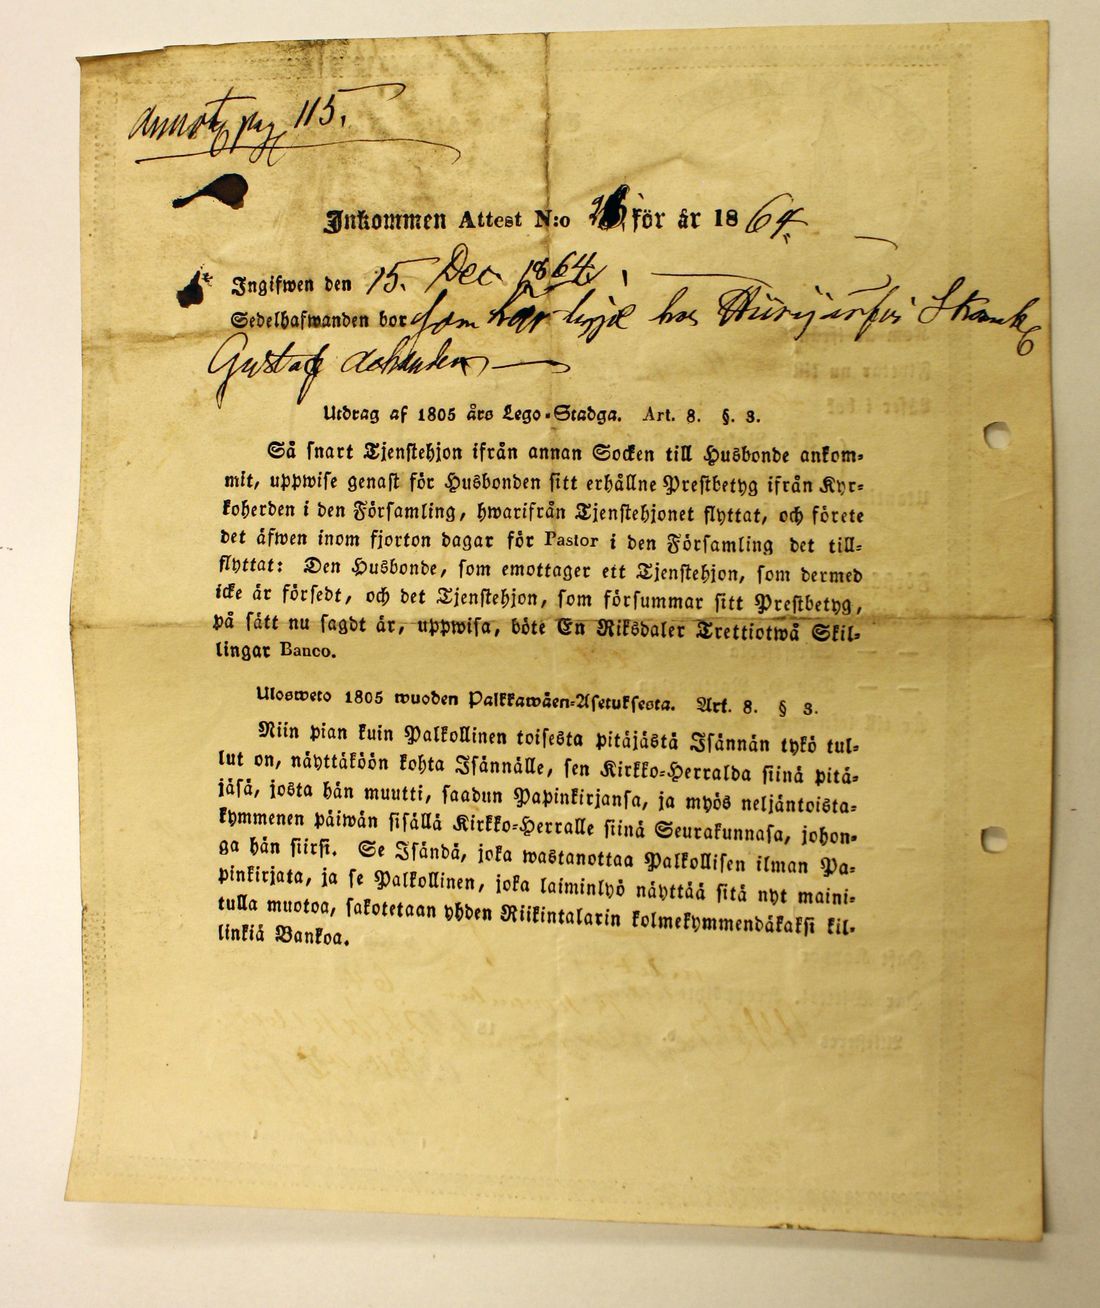 annot. pag 115.
Inkommen Attest N:o för år 1864.
Ingifwen den 15. Dec. 1864.
Sedelhafwanden bor som hos
Gustaf
Utdrag af 1805 års Lego-Stadga. Art. 8. §. 3.
Så snart Tjenstehjon ifrån annan Socken till Husbonde ankom-
mit, uppwise genast för Husbonden sitt erhållne Prestbetyg ifrån Kyr-
koherden i den Församling, hwarifrån Tjenstehjonet flyttat, och förete
det äfwen inom fjorton dagar för Pastor i den Församling det till-
flyttat: Den Husbonde, som emottager ett Tjenstehjon, som dermed
icke är försedt, och det Tjenstehjon, som försummar sitt Prestbetyg,
på sätt nu sagdt är, uppwisa, böte En Riksdaler Trettiotwå Skil-
lingar Banco.
Ulosweto 1805 wuoden Palkkawäen-Asetuksesta. Art. 8. § 3.
Niin pian kuin Palkollinen toisesta pitäjästä Isännän tykö tul-
lut on, näyttäköön kohta Isännälle, sen Kirkko-Herralda siinä pitä-
jäsä, josta hän muutti, saadun Papinkirjansa, ja myös neljäntoista-
kymmenen päiwän sisällä Kirkko-Herralle siinä Seurakunnasa, johon-
ga hän siirsi. Se Isändä, joka wastanottaa Palkollisen ilman Pa-
pinkirjata, ja se Palkollinen, joka laiminlyö näyttää sitä nyt maini-
tulla muotoa, sakotetaan yhden Riikintalarin kolmekymmendäkaksi kil-
linkiä Bankoa.